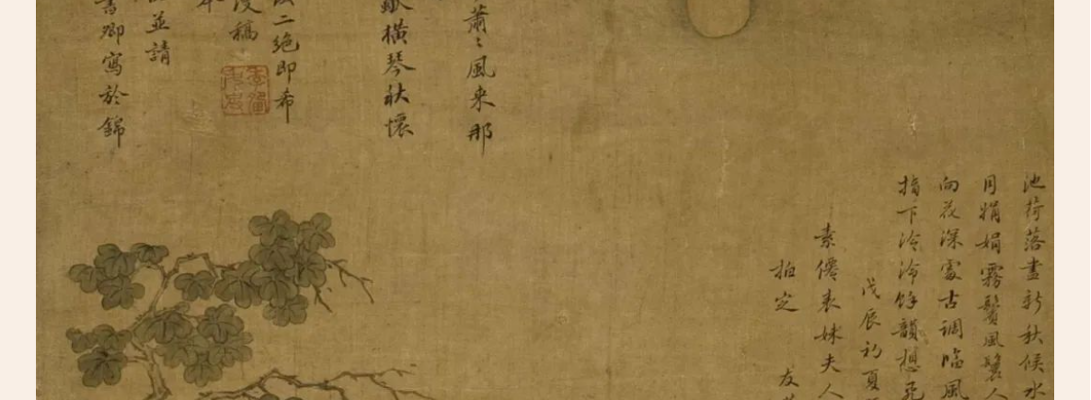 池荷落盡新秋候水
月娟娟霧鬢風鬟人
向花深處古調臨風
指下泠泠餘韻想飛
戊辰初夏
素僊表妹夫人
拍定
友
蕭〻風來那
橫琴秋懷
二絕即希
稿
並請
書卿寫於錦